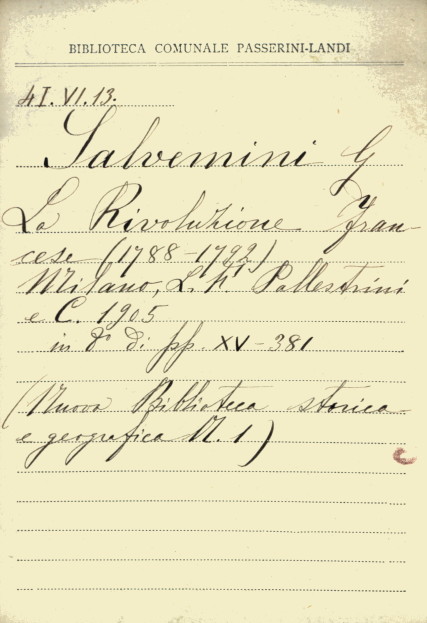 BIBLIOTECA COMUNALE PASSERINI-LANDI
4I.VI.13.
Salvemini G
La Rivoluzione Fran-
cese (1788-1792)
Milano, L. F. Pallestrini
e C. 1905
in 8° di pp. XV-381
(Nuova Biblioteca storica
e geografica N. 1)